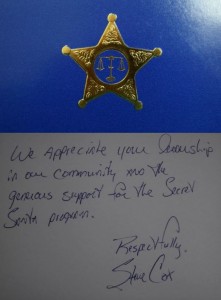 We Appreciate your Ownership
in our community and the
generous support for the Secret
Santa program.
Respectfully,
Steve Cox